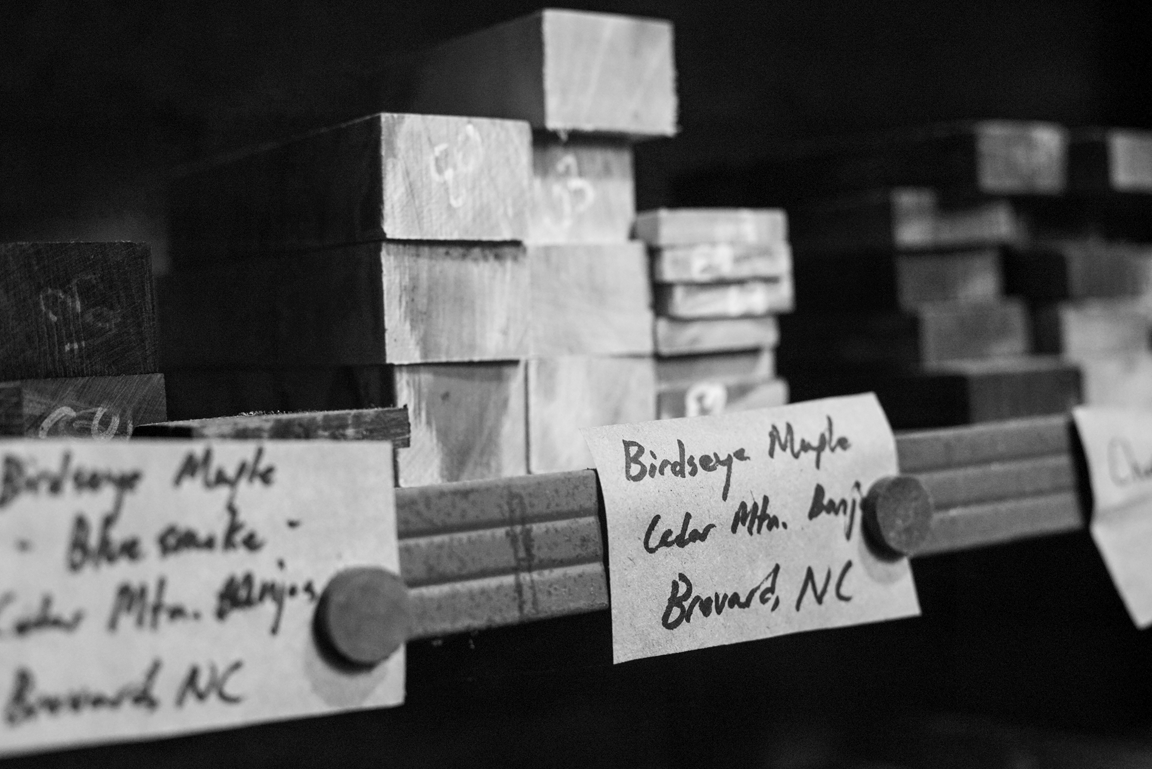 Birdseye Maple
- Blue smoke -
Cedar Mtn. Banjos
Brevard, NC
Birdseye Maple
Cedar Mtn. Banj
Brevard, NC